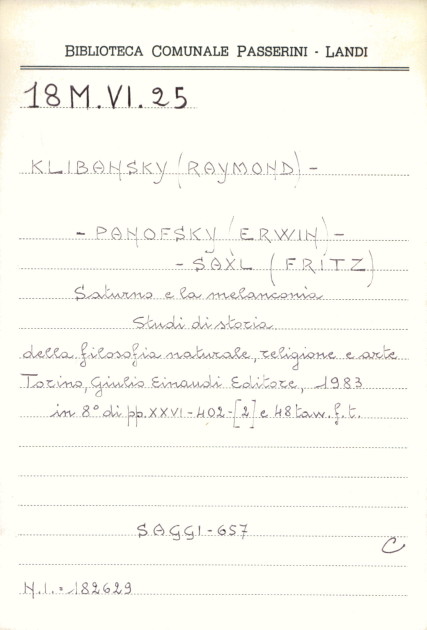 BIBLIOTECA COMUNALE PASSERINI - LANDI
18 M. VI. 25
KLIBANSKY (RAYMOND) -
- PANOFSKY (ERWIN) -
- SAXL (FRITZ)
Saturno e la melanconia
Studi di storia
della filosofia naturale, religione e arte
Torino, Giulio Einaudi Editore, 1983
in 8° di pp. XXVI - 402 - [2] e 48 tav. f. t.
SAGGI - 657
C
N.I. = 182629